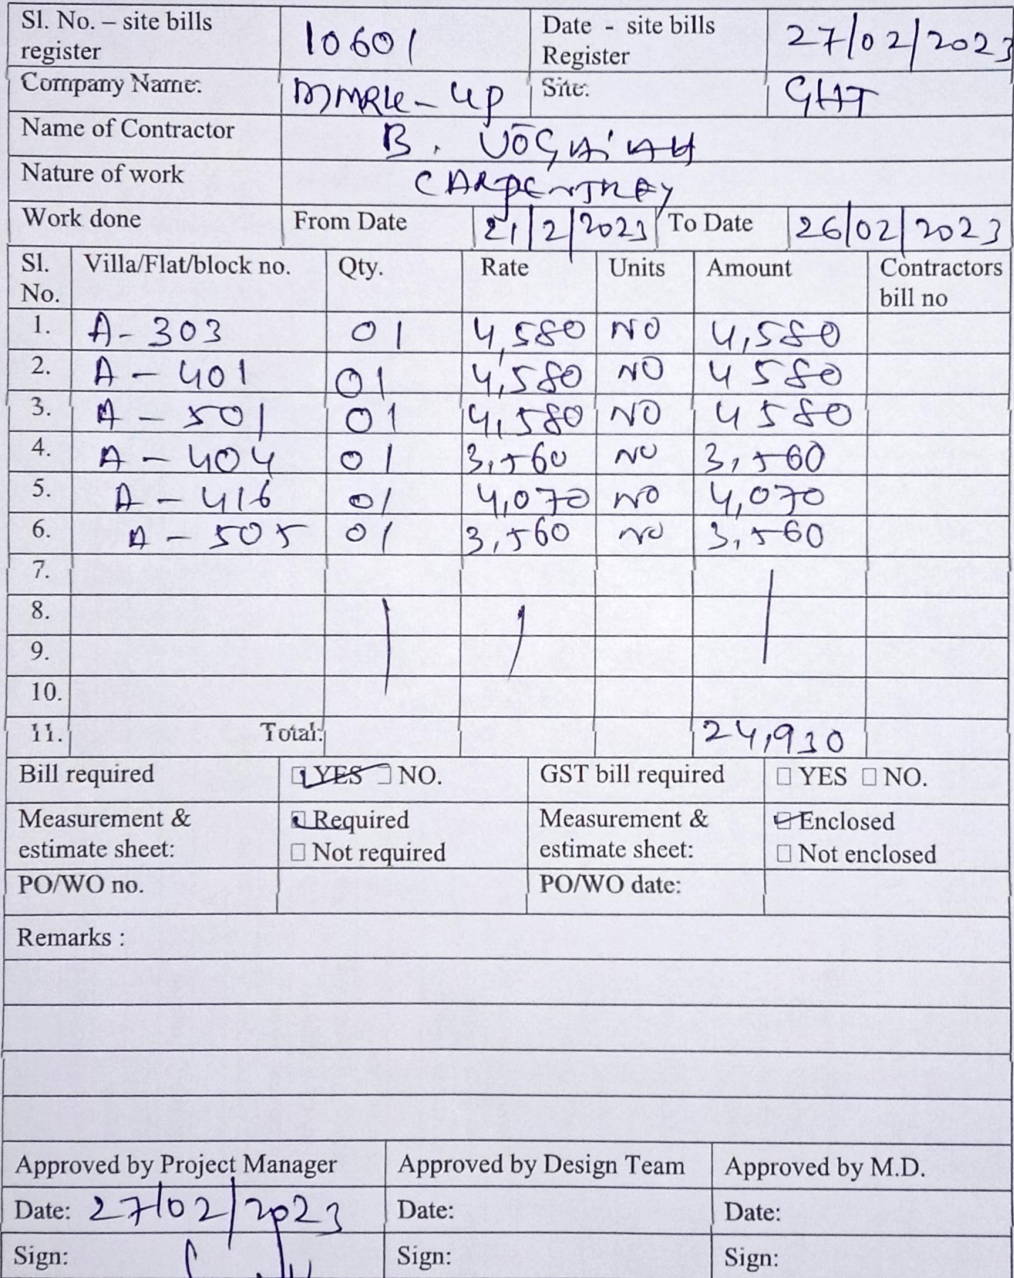 Sl. No. – site bills register 10601 Date - site bills Register 27/02/2023
Company Name: Site: GHT
Name of Contractor B.
Nature of work CARPENTREY
Work done From Date 21/2/2023 To Date 26/02/2023
Sl. No. Villa/Flat/block no. Qty. Rate Units Amount Contractors bill no
1. A-303 01 4,580 NO 4,580
2. A-401 01 4,580 NO 4580
3. A-501 01 4,580 NO 4580
4. A-404 01 3,560 NO 3,560
5. A-416 01 4,070 NO 4,070
6. A-505 01 3,560 NO 3,560
7.
8.
9.
10.
11. Total: 24,930
Bill required YES NO. GST bill required YES NO.
Measurement & estimate sheet: Required Not required Measurement & estimate sheet: Enclosed Not enclosed
PO/WO no. PO/WO date:
Remarks :
Approved by Project Manager Approved by Design Team Approved by M.D.
Date: 27/02/2023 Date: Date:
Sign: Sign: Sign: